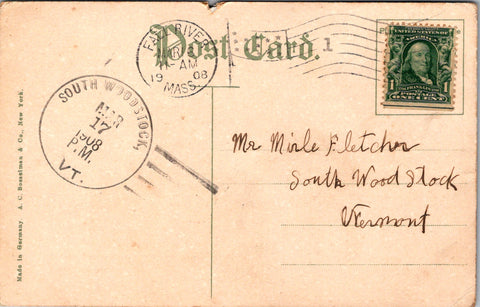 Post Card.
FALL RIVER
AM
1908
MASS.
1
UNITED STATES OF
AMERICA
1 1
POSTAGE
ONE CENT
SOUTH WOODSTOCK,
MAR
17
1908
P.M.
VT.
Mr Mirle Fletcher
South Wood Stock
Vermont
Made in Germany A. C. Bosselman & Co., New York.